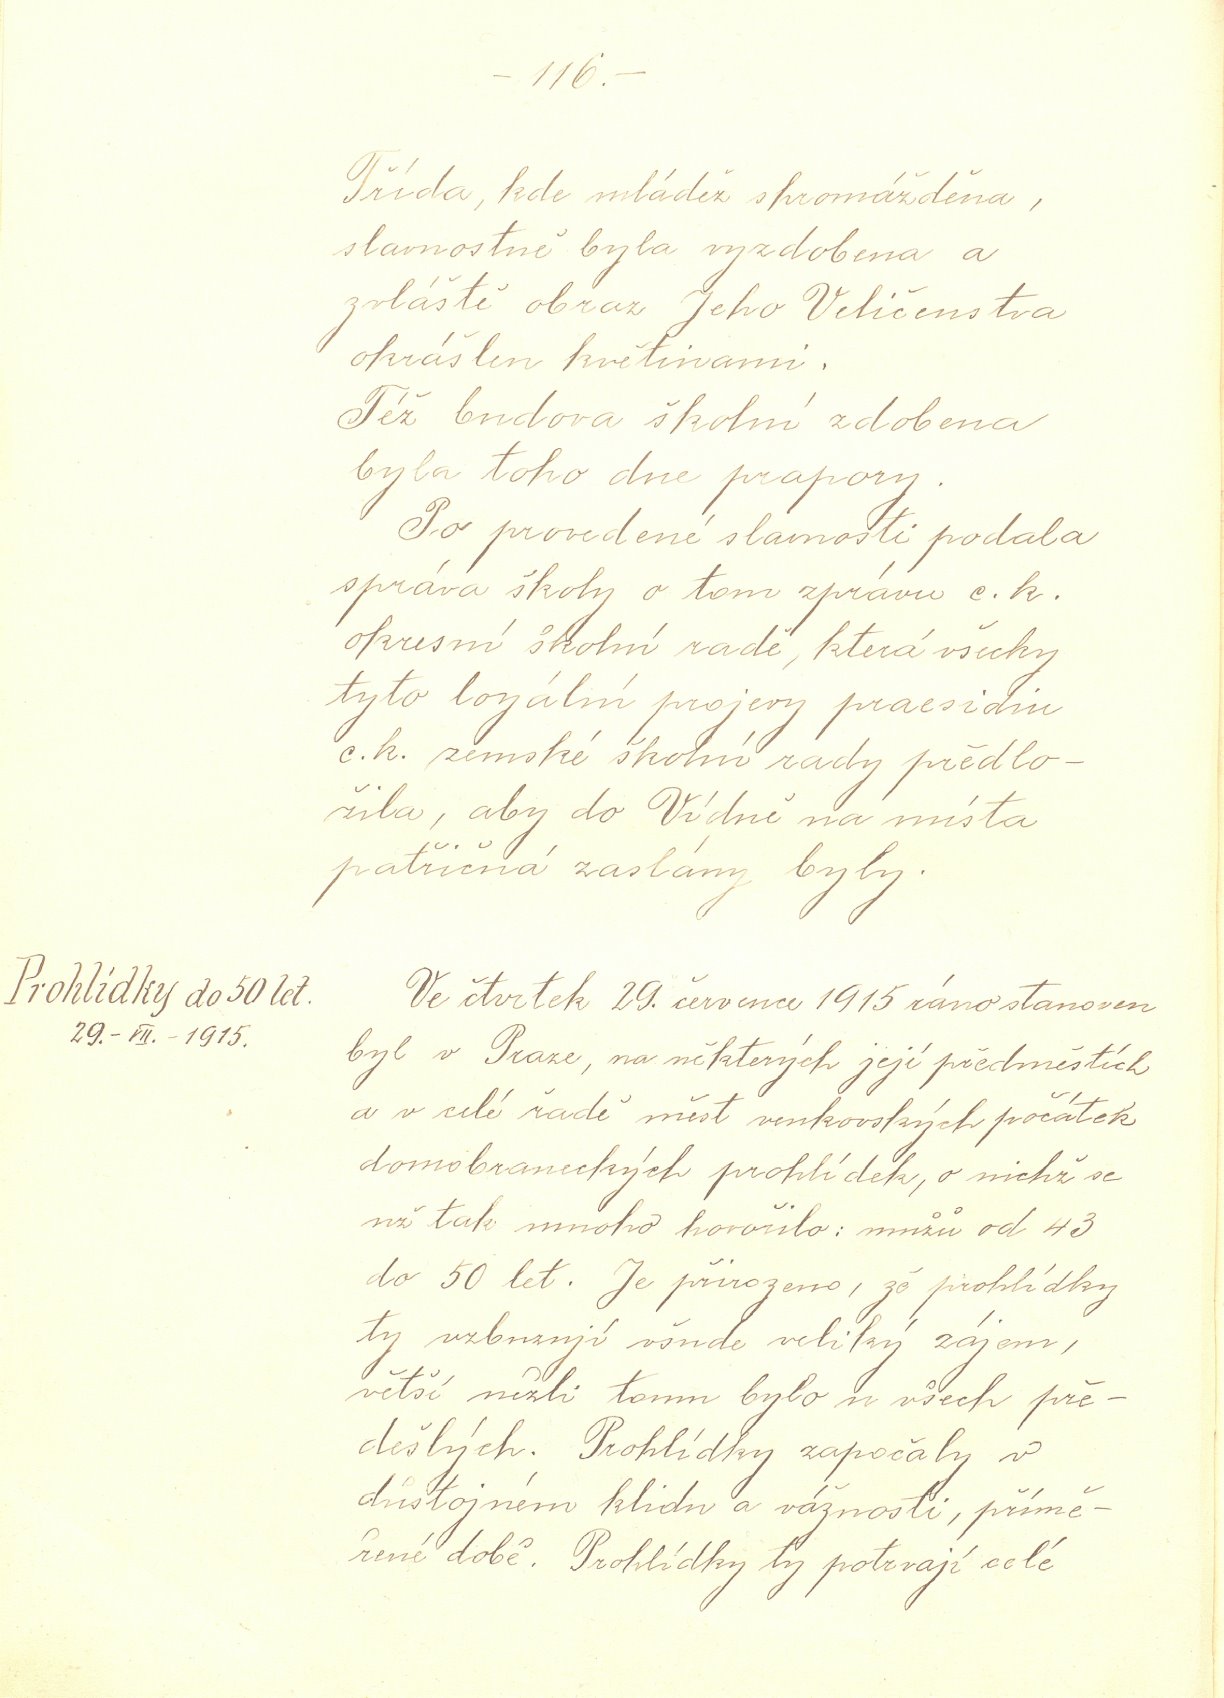 - 116. -
Třída, kde mládež shromážděna,
slavnostně byla vyzdobena a
zvláště obraz Jeho Veličenstva
okrášlen květinami.
Též budova školní zdobena
byla toho dne prapory.
Po provedené slavnosti podala
správa školy o tom zprávu c. k.
okresní školní radě, která všecky
tyto loyální projevy praesidiu
c. k. zemské školní rady předlo-
žila, aby do Vídně na místa
patřičná zaslány byly.
Prohlídky do 50 let.
29. - VII. - 1915.
Ve čtvrtek 29. července 1915 ráno stanoven
byl v Praze, na některých její předměstích
a v celé řadě měst venkovských počátek
domobraneckých prohlídek, o nichž se
už tak mnoho hovořilo: mužů od 43
do 50 let. Je přirozeno, že prohlídky
ty vzbuzují všude veliký zájem,
větší nežli tomu bylo u všech pře-
dešlých. Prohlídky započaly v
důstojném klidu a vážnosti, přímě-
řené době. Prohlídky ty potrvají celé